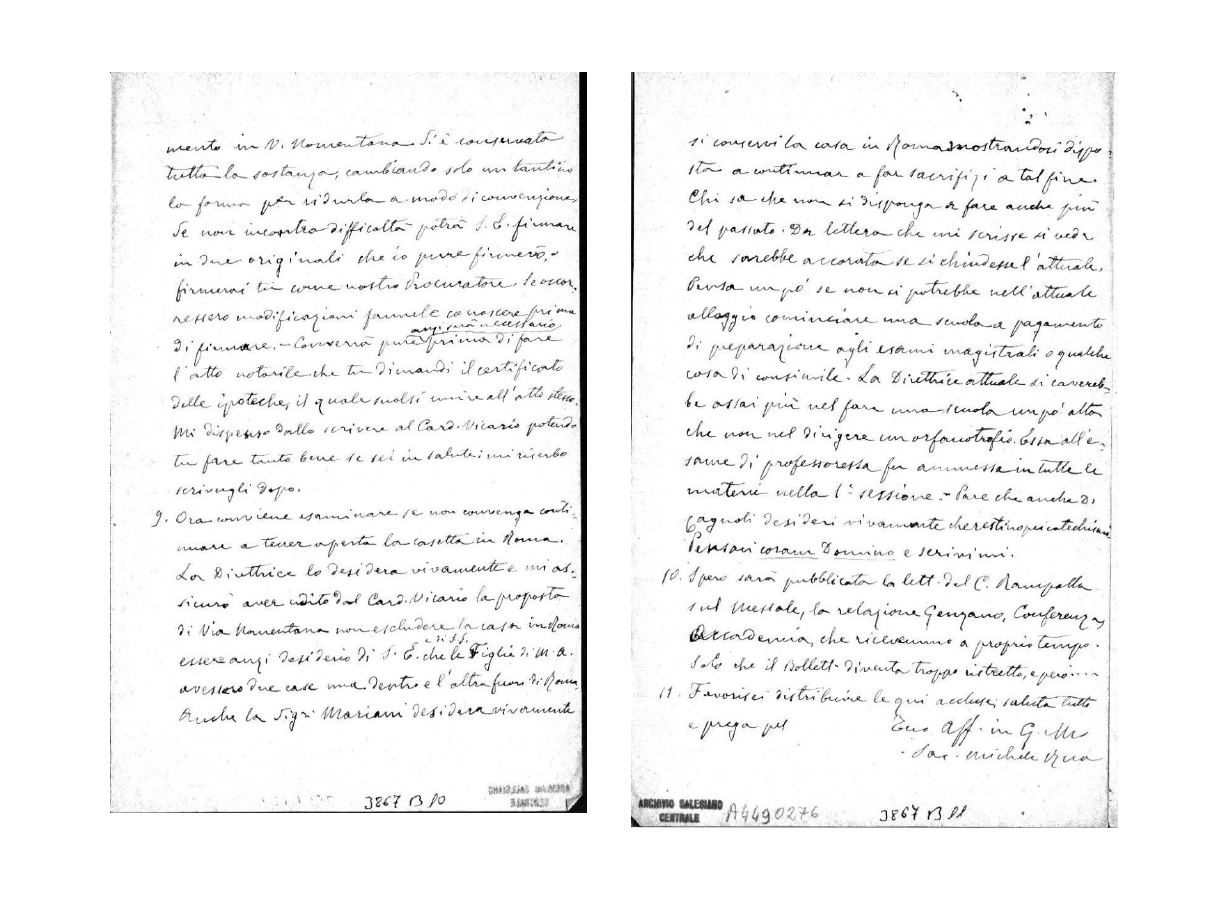 mento in V. Nomentana. Si è conservata
tutta la sostanza, cambiando solo un tantino
la forma per ridurla a modo di convenzione.
Se non incontra difficoltà potrà S. E. firmare
in due originali che io pure firmerò, e
firmerai tu come nostro Procuratore. Se occor-
ressero modificazioni fannele conoscere prima
anzi sarà necessario
di firmare. - Converrà pure prima di fare
l'atto notarile che tu dimandi il certificato
delle ipoteche, il quale suolsi unire all'atto stesso.
Mi dispenso dallo scrivere al Card. Vicario potendo
tu fare tanto bene se sei in salute: mi riserbo
scrivergli dopo.
9. Ora conviene esaminare se non convenga conti-
nuare a tener aperta la casetta in Roma.
La Direttrice lo desidera vivamente e mi as-
sicurò aver udito dal Card. Vicario la proposta
di Via Nomentana non escludere la casa in Roma
e di S.S.
essere anzi desiderio di S. E. che le Figlie di M. A.
avessero due case una dentro e l'altra fuori di Roma.
Anche la Sigra Mariani desidera vivamente
3867 B 10
si conservi la casa in Roma mostrandosi dispo-
sta a continuar a far sacrifizi a tal fine.
Chi sa che non si disponga a fare anche più
del passato. Da lettera che mi scrisse si vede
che sarebbe accorata se si chiudesse l'attuale.
Pensa un pò se non si potrebbe nell'attuale
alloggio cominciare una scuola a pagamento
di preparazione agli esami magistrali o qualche
cosa di consimile. La Direttrice attuale si cavereb-
be assai più nel fare una scuola un pò alta
che non nel dirigere un orfanotrofio. Essa all'e-
same di professoressa fu ammessa in tutte le
materie nella 1.a sessione. - Pare che anche D.
Cagnoli desideri vivamente che restino pei catechismi
Pensaci coram Domino e scrivimi.
10. Spero sarà pubblicata la lett. del C. Rampolla
sul Messale, la relazione Genzano, Conferenza,
Accademia, che ricevemmo a proprio tempo.
Solo che il Bollett. diventa troppo ristretto, e però....
11. Favorisci distribuire le qui accluse; saluta tutti
e prega pel
Tuo Aff. in G. M.
Sac. Michele Rua
ARCHIVIO SALESIANO
CENTRALE
A4490276
3867 B 11